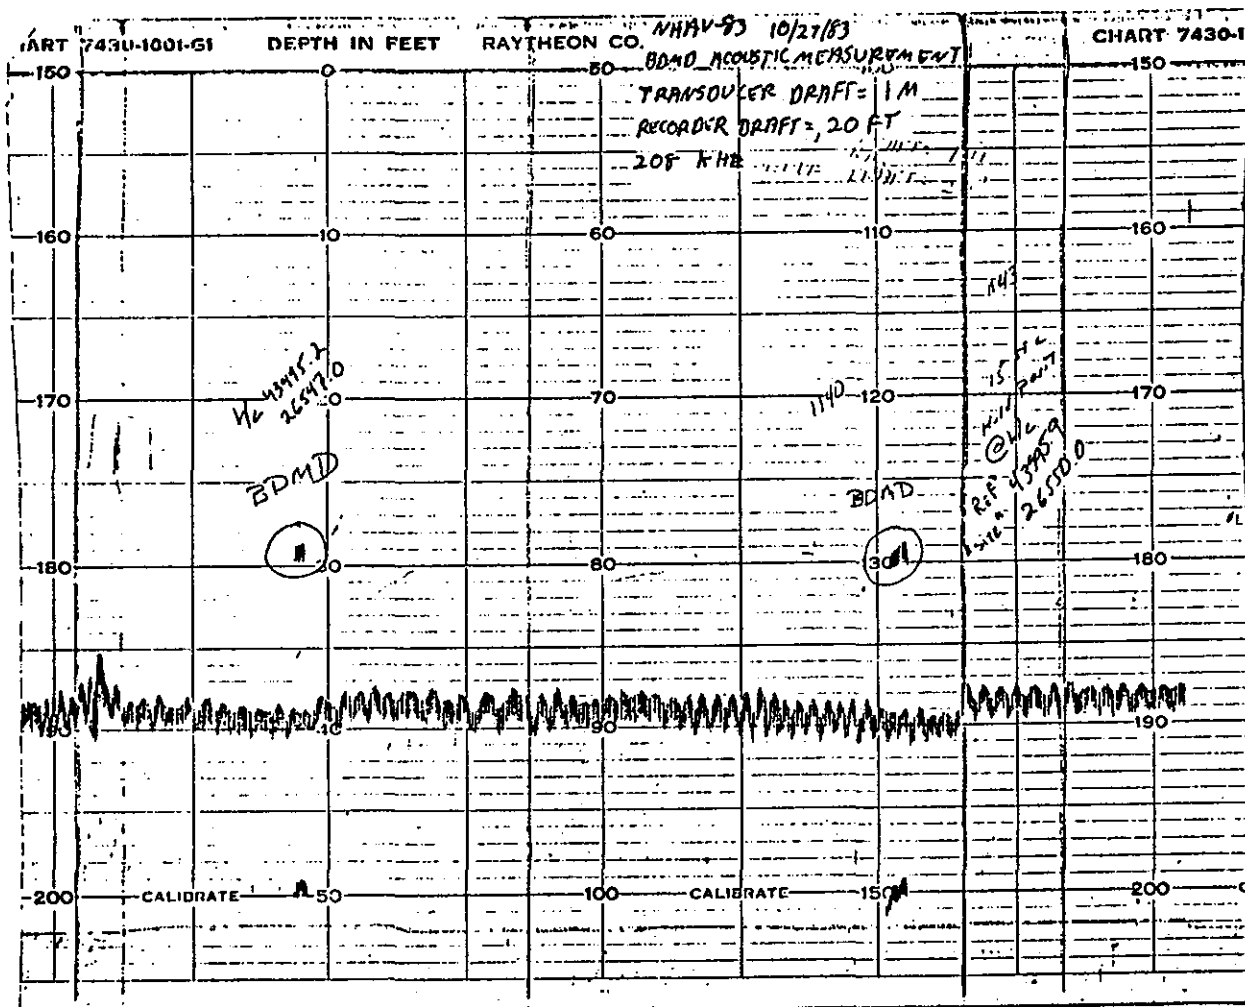 CHART 7430-1001-G1 DEPTH IN FEET RAYTHEON CO. CHART 7430-1
NHAV-83 10/27/83
BDMD ACOUSTIC MEASUREMENT
TRANSDUCER DRAFT = 1 M
RECORDER DRAFT = , 20 FT
208 KHZ
150 0 50 150
160 10 60 110 160
1143
L/C 43995.2
26547.0
15
@ L/C
REF 43995.9
26550.0
170 20 70 120 170
1140
BDMD
BDMD
180 30 80 30 180
190 40 90 190
200 CALIBRATE 50 100 CALIBRATE 150 200